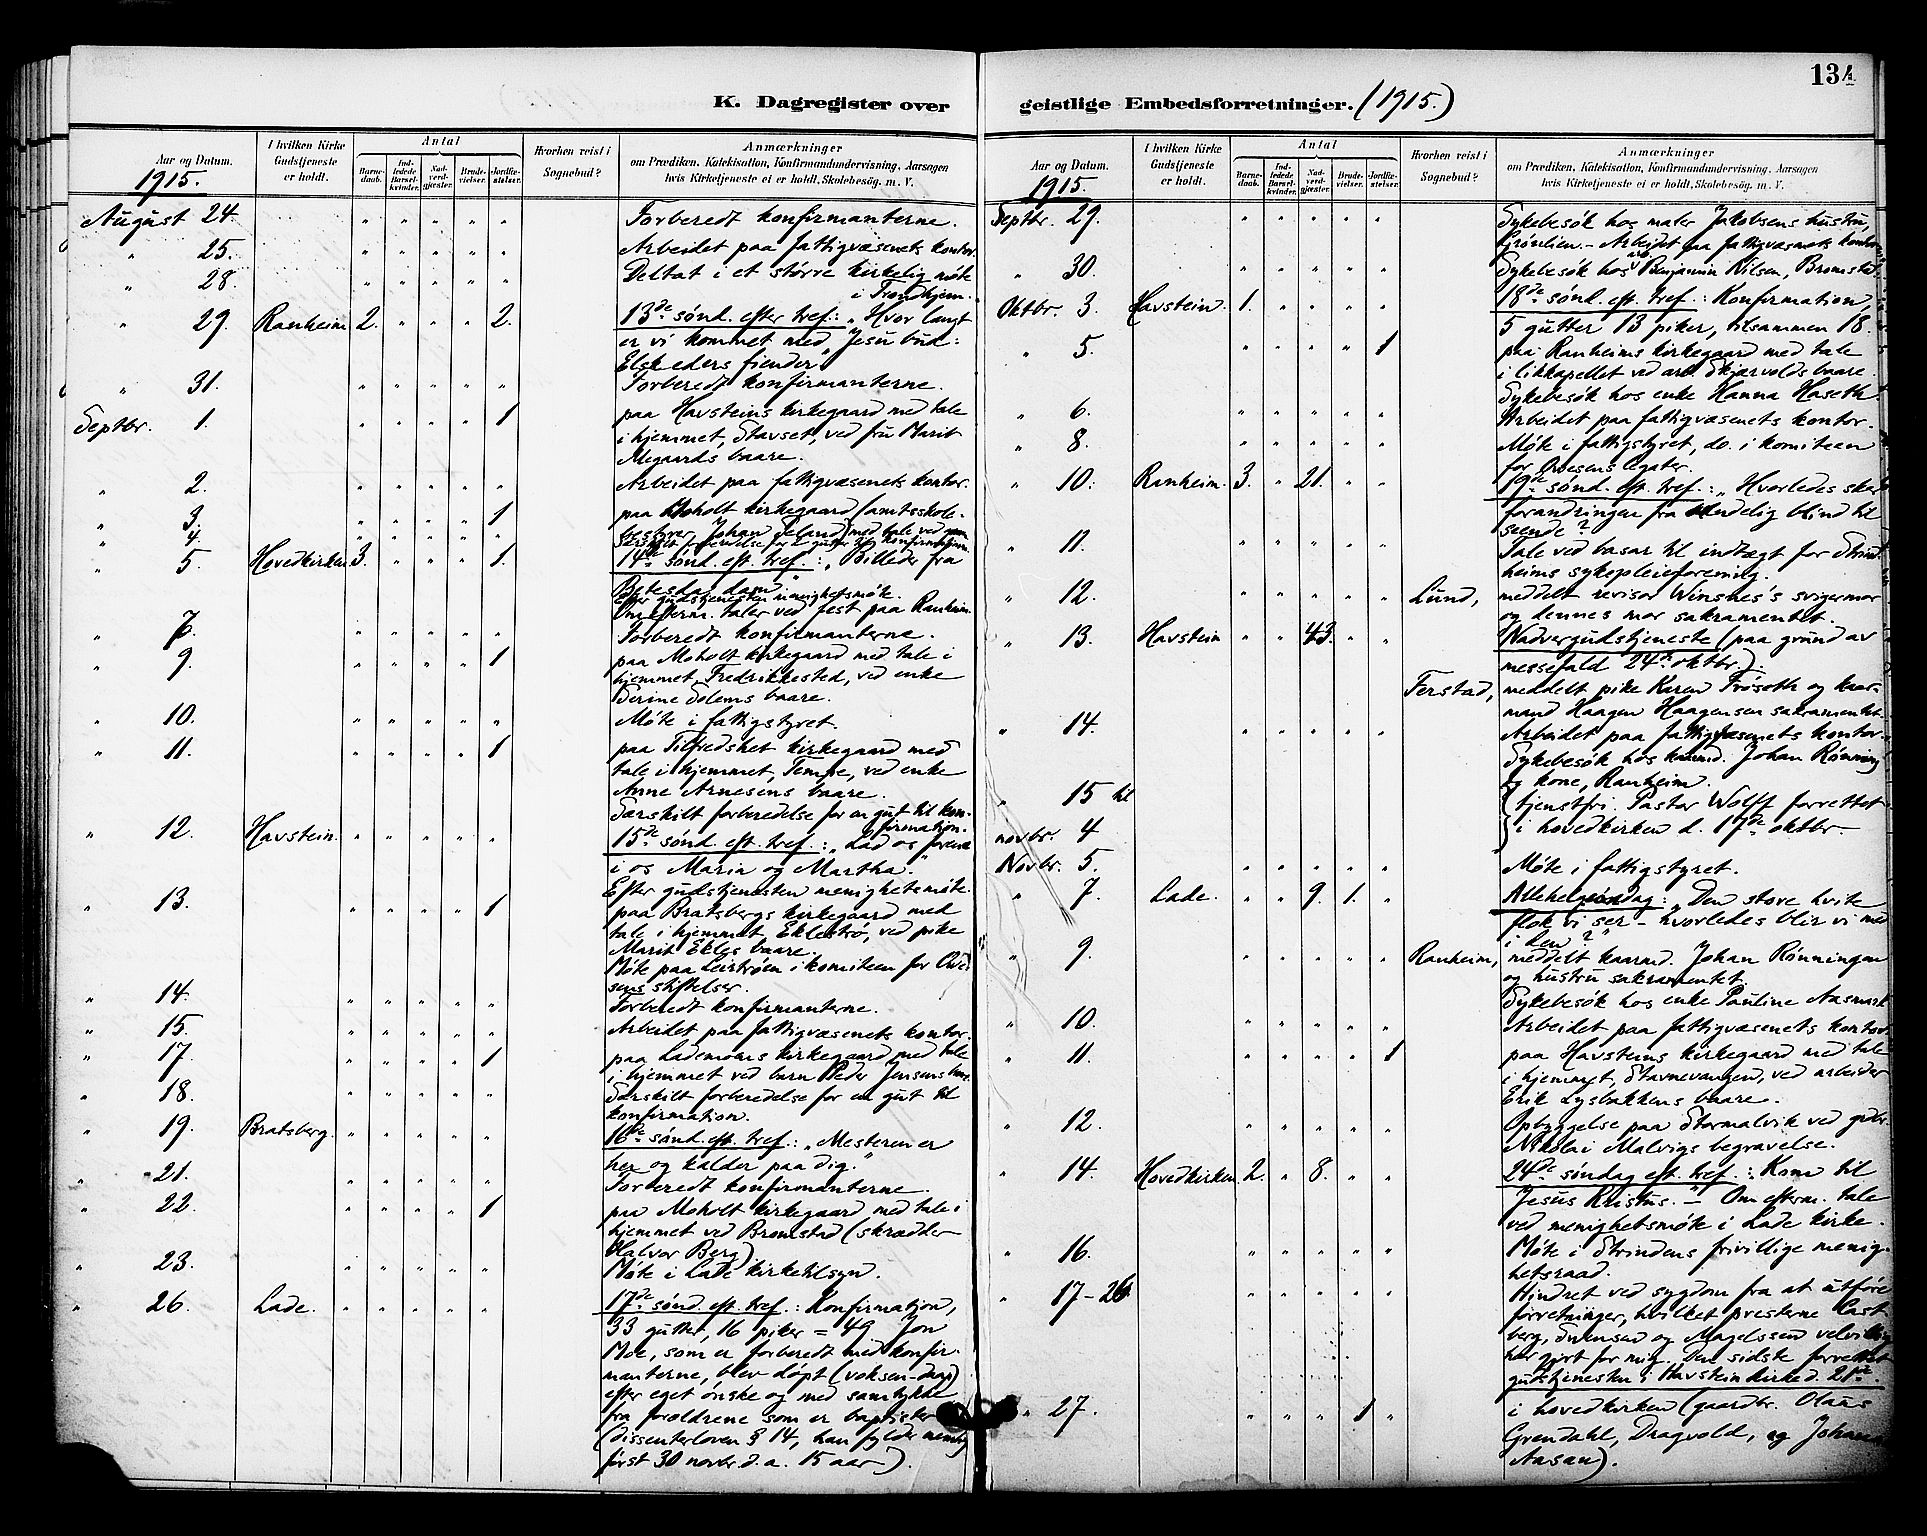 134
K. Dagregister over geistlige Embedsforretninger. (1915.)
Aar og Datum.
I hvilken Kirke Gudstjeneste er holdt.
Antal
Barnedaab.
Indledede Barselkvinder.
Nadverdgjester.
Brudevielser.
Jordfæstelser.
Hvorhen reist i Sognebud?
Anmærkninger
om Prædiken, Katekisation, Konfirmandundervisning, Aarsagen
hvis Kirketjeneste ei er holdt, Skolebesøg. m. V.
1915.
August 24. " " " " " Forberedt konfirmanterne.
" 25. " " " " " Arbeidet paa fattigvæsenets kontor.
" 28. " " " " " Deltat i et større kirkelig møte
i Trondhjem.
" 29. Ranheim 2. " " " 2. 13de sønd. efter tref.: "Hvor langt
er vi kommet med Jesu bud:
Elsk eders fiender"
" 31. " " " " " Forberedt konfirmanterne.
Septbr. 1. " " " " 1 paa Havsteins kirkegaard med tale
i hjemmet, Stavset, ved fru Marit
Megaards baare.
" 2. " " " " " Arbeidet paa fattigvæsenets kontor.
" 3. " " " " 1 paa Moholt kirkegaard (amtsskole-
bestyrer Johan Seland) med tale ved
" 4. " " " " " Særskilt forberedelse for 2 gutter til konfirmation.
" 5. Hovedkirken 3. " " " 1. 14de sønd. eft. tref.: "Billeder fra
Betesda dam"
Efter gudstjenesten menighetsmøte.
Om efterm. taler ved fest paa Ranheim.
" 7. " " " " " Forberedt konfirmanterne.
" 9. " " " " 1 paa Moholt kirkegaard med tale i
hjemmet, Fredrikkested, ved enke
Serine Solems baare.
" 10. " " " " " Møte i fattigstyret.
" 11. " " " " 1 paa Tilfredshet kirkegaard med
tale i hjemmet, Tempe, ved enke
Anne Arnesens baare.
Særskilt forberedelse for en gut til kon-
firmation.
" 12. Havstein. " " " " " 15de sønd. eft. tref.: "Lad os forene
i os Maria og Martha."
Efter gudstjenesten menighetsmøte.
" 13. " " " " 1 paa Bratsbergs kirkegaard med
tale i hjemmet, Eklestrø, ved pike
Marit Ekles baare.
Møte paa Leistrøen i komiteen for Owe-
sens stiftelser.
" 14. " " " " " Forberedt konfirmanterne.
" 15. " " " " " Arbeidet paa fattigvæsenets kontor.
" 17. " " " " 1 paa Lademoens kirkegaard med tale
i hjemmet ved barn Peder Jensens baare.
" 18. " " " " " Særskilt forberedelse for en gut til
konfirmation.
" 19. Bratsberg. " " " " " 16de sønd. eft. tref.: "Mesteren er
her og kalder paa dig."
" 21. " " " " " Forberedt konfirmanterne.
" 22. " " " " 1 paa Moholt kirkegaard med tale i
hjemmet ved Bromstad (skrædder
Halvor Berg).
" 23. " " " " " Møte i Lade kirketilsyn.
" 26. Lade. " " " " " 17de sønd. eft. tref.: Konfirmation,
33 gutter, 16 piker = 49 Jon
Moe, som er forberedt med konfir-
manterne, blev døpt (voksen-daap)
efter eget ønske og med samtykke
fra forældrene som er baptister
(dissenterloven § 14, han fylder nemlig
først 30 novbr. d. a. 15 aar).
Aar og Datum.
I hvilken Kirke Gudstjeneste er holdt.
Antal
Barnedaab.
Indledede Barselkvinder.
Nadverdgjester.
Brudevielser.
Jordfæstelser.
Hvorhen reist i Sognebud?
Anmærkninger
om Prædiken, Katekisation, Konfirmandundervisning, Aarsagen
hvis Kirketjeneste ei er holdt, Skolebesøg. m. V.
1915.
Septbr. 29. " " " " " Sykebesøk hos maler Jakobsens hustru,
Grønlien. - Arbeidet paa fattigvæsenets kontor.
" 30. " " " " " Sykebesøk hos Benjamin Nilsen, Bromstad.
Oktbr. 3. Havstein. 1. " " " " 18de sønd. eft. tref.: Konfirmation,
5 gutter 13 piker, tilsammen 18.
" 5. " " " " 1 paa Ranheims kirkegaard med tale
i likkapellet ved arb. Skjærvolds baare.
Sykebesøk hos enke Hanna Haseth.
" 6. " " " " " Arbeidet paa fattigvæsenets kontor.
" 8. " " " " " Møte i fattigstyret, do. i komiteen
for Owesens legater.
" 10. Ranheim. 3. " 21. " " 19de sønd. eft. tref.: "Hvorledes sker
forandringen fra aandelig blind til
seende?
" 11. " " " " " Tale ved basar til indtægt for Strind-
heims sykepleieforening.
" 12. " " " " " Lund, meddelt revisor Winsnes's svigermor
og dennes mor sakramentet.
" 13. Havstein " " 43. " " Nadvergudstjeneste (paa grund av
messefald 24de oktbr.).
Ferstad, meddelt pike Karen Frøseth og kaar-
mand Haagen Haagensen sakramentet.
" 14. " " " " " Arbeidet paa fattigvæsenets kontor.
Sykebesøk hos kaarmd. Johan Rønning
og kone, Ranheim.
" 15 til
novbr. 4 tjenstfri. Pastor Wolff forrettet
i hovedkirken d. 17de oktbr.
Novbr. 5. " " " " " Møte i fattigstyret.
" 7. Lade. " " 9. 1. " Allehelgensdag: "Den store hvite
flok vi ser - hvorledes blir vi med
i den?"
" 9. " " " " " Ranheim, meddelt kaarmd. Johan Rønningen
og hustru sakramentet.
Sykebesøk hos enke Pauline Aasmark
" 10. " " " " " Arbeidet paa fattigvæsenets kontor.
" 11. " " " " 1 paa Havsteins kirkegaard med tale
i hjemmet, Stavnevangen, ved arbeider
Erik Lysbakkens baare.
" 12. " " " " " Opbyggelse paa Stormalvik ved gdbr.
Nikolai Malvigs begravelse.
" 14. Hovedkirken 2. " 8. " " 24de søndag eft. tref.: Kom til
Jesus Kristus. - Om efterm. tale
ved menighetsmøte i Lade kirke.
" 16. " " " " " Møte i Strindens frivillige menig-
hetsraad.
" 17-26. " " " " " Hindret ved sygdom fra at utføre
forretninger, hvilket presterne Cast-
berg, Svensen og Magelssen velvillig
har gjort for mig. Den sidste forrettet
gudstjenesten i Havstein kirke d. 21de.
" 27. " " " 1 " i hovedkirken (gaardbr. Olaus
Grendahl, Dragvold, og Johanna
Aasan).